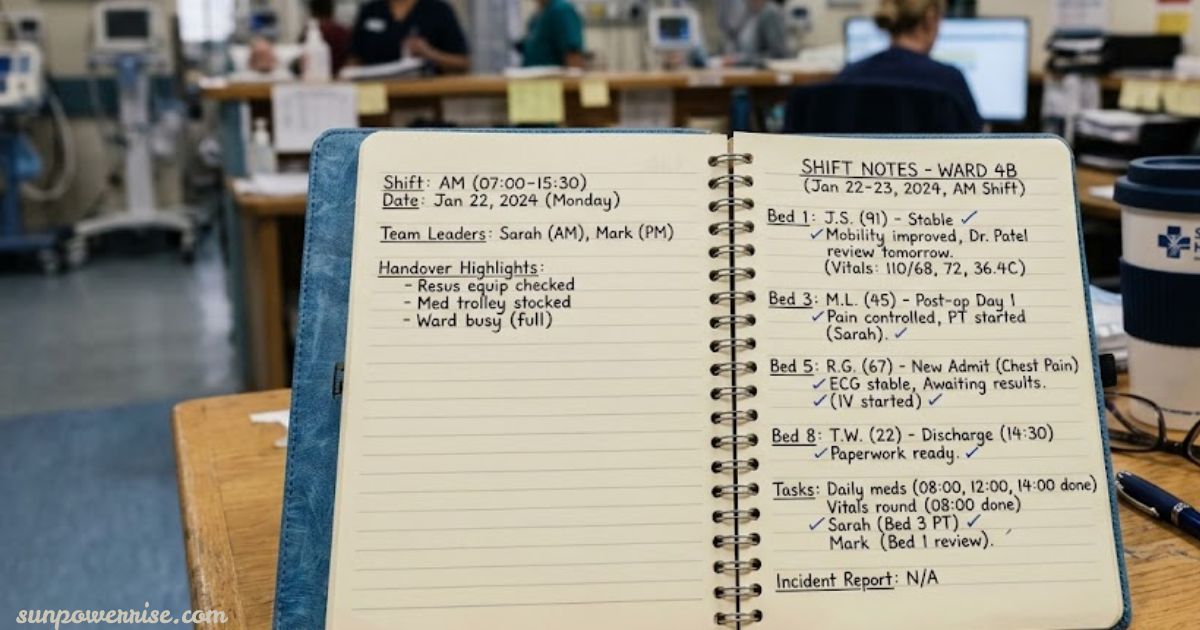 Shift: AM (07:00-15:30)
Date: Jan 22, 2024 (Monday)
Team Leaders: Sarah (AM), Mark (PM)
Handover Highlights:
- Resus equip checked
- Med trolley stocked
- Ward busy (full)
SHIFT NOTES - WARD 4B
(Jan 22-23, 2024, AM Shift)
Bed 1: J.S. (91) - Stable ✓
✓ Mobility improved, Dr. Patel
review tomorrow.
(Vitals: 110/68, 72, 36.4C)
Bed 3: M.L. (45) - Post-op Day 1
✓ Pain controlled, PT started
(Sarah). ✓
Bed 5: R.G. (67) - New Admit (Chest Pain)
✓ ECG stable, Awaiting results.
✓ (IV started) ✓
Bed 8: T.W. (22) - Discharge (14:30)
✓ Paperwork ready. ✓
Tasks: Daily meds (08:00, 12:00, 14:00 done)
Vitals round (08:00 done)
✓ Sarah (Bed 3 PT) ✓
Mark (Bed 1 review).
Incident Report: N/A
sunpowerrise.com